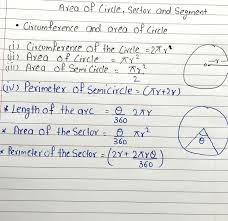 Area of Circle, Sector and Segment
• Circumference and area of Circle
(i) Circumference of the Circle = 2πr
(ii) Area of Circle = πr²
(iii) Area of SemiCircle = πr²/2
r
(iv) Perimeter of SemiCircle = (πr+2r)
* Length of the arc = θ/360 2πr
* Area of the Sector = θ/360 πr²
θ
* Perimeter of the Sector = (2r + 2πrθ/360)